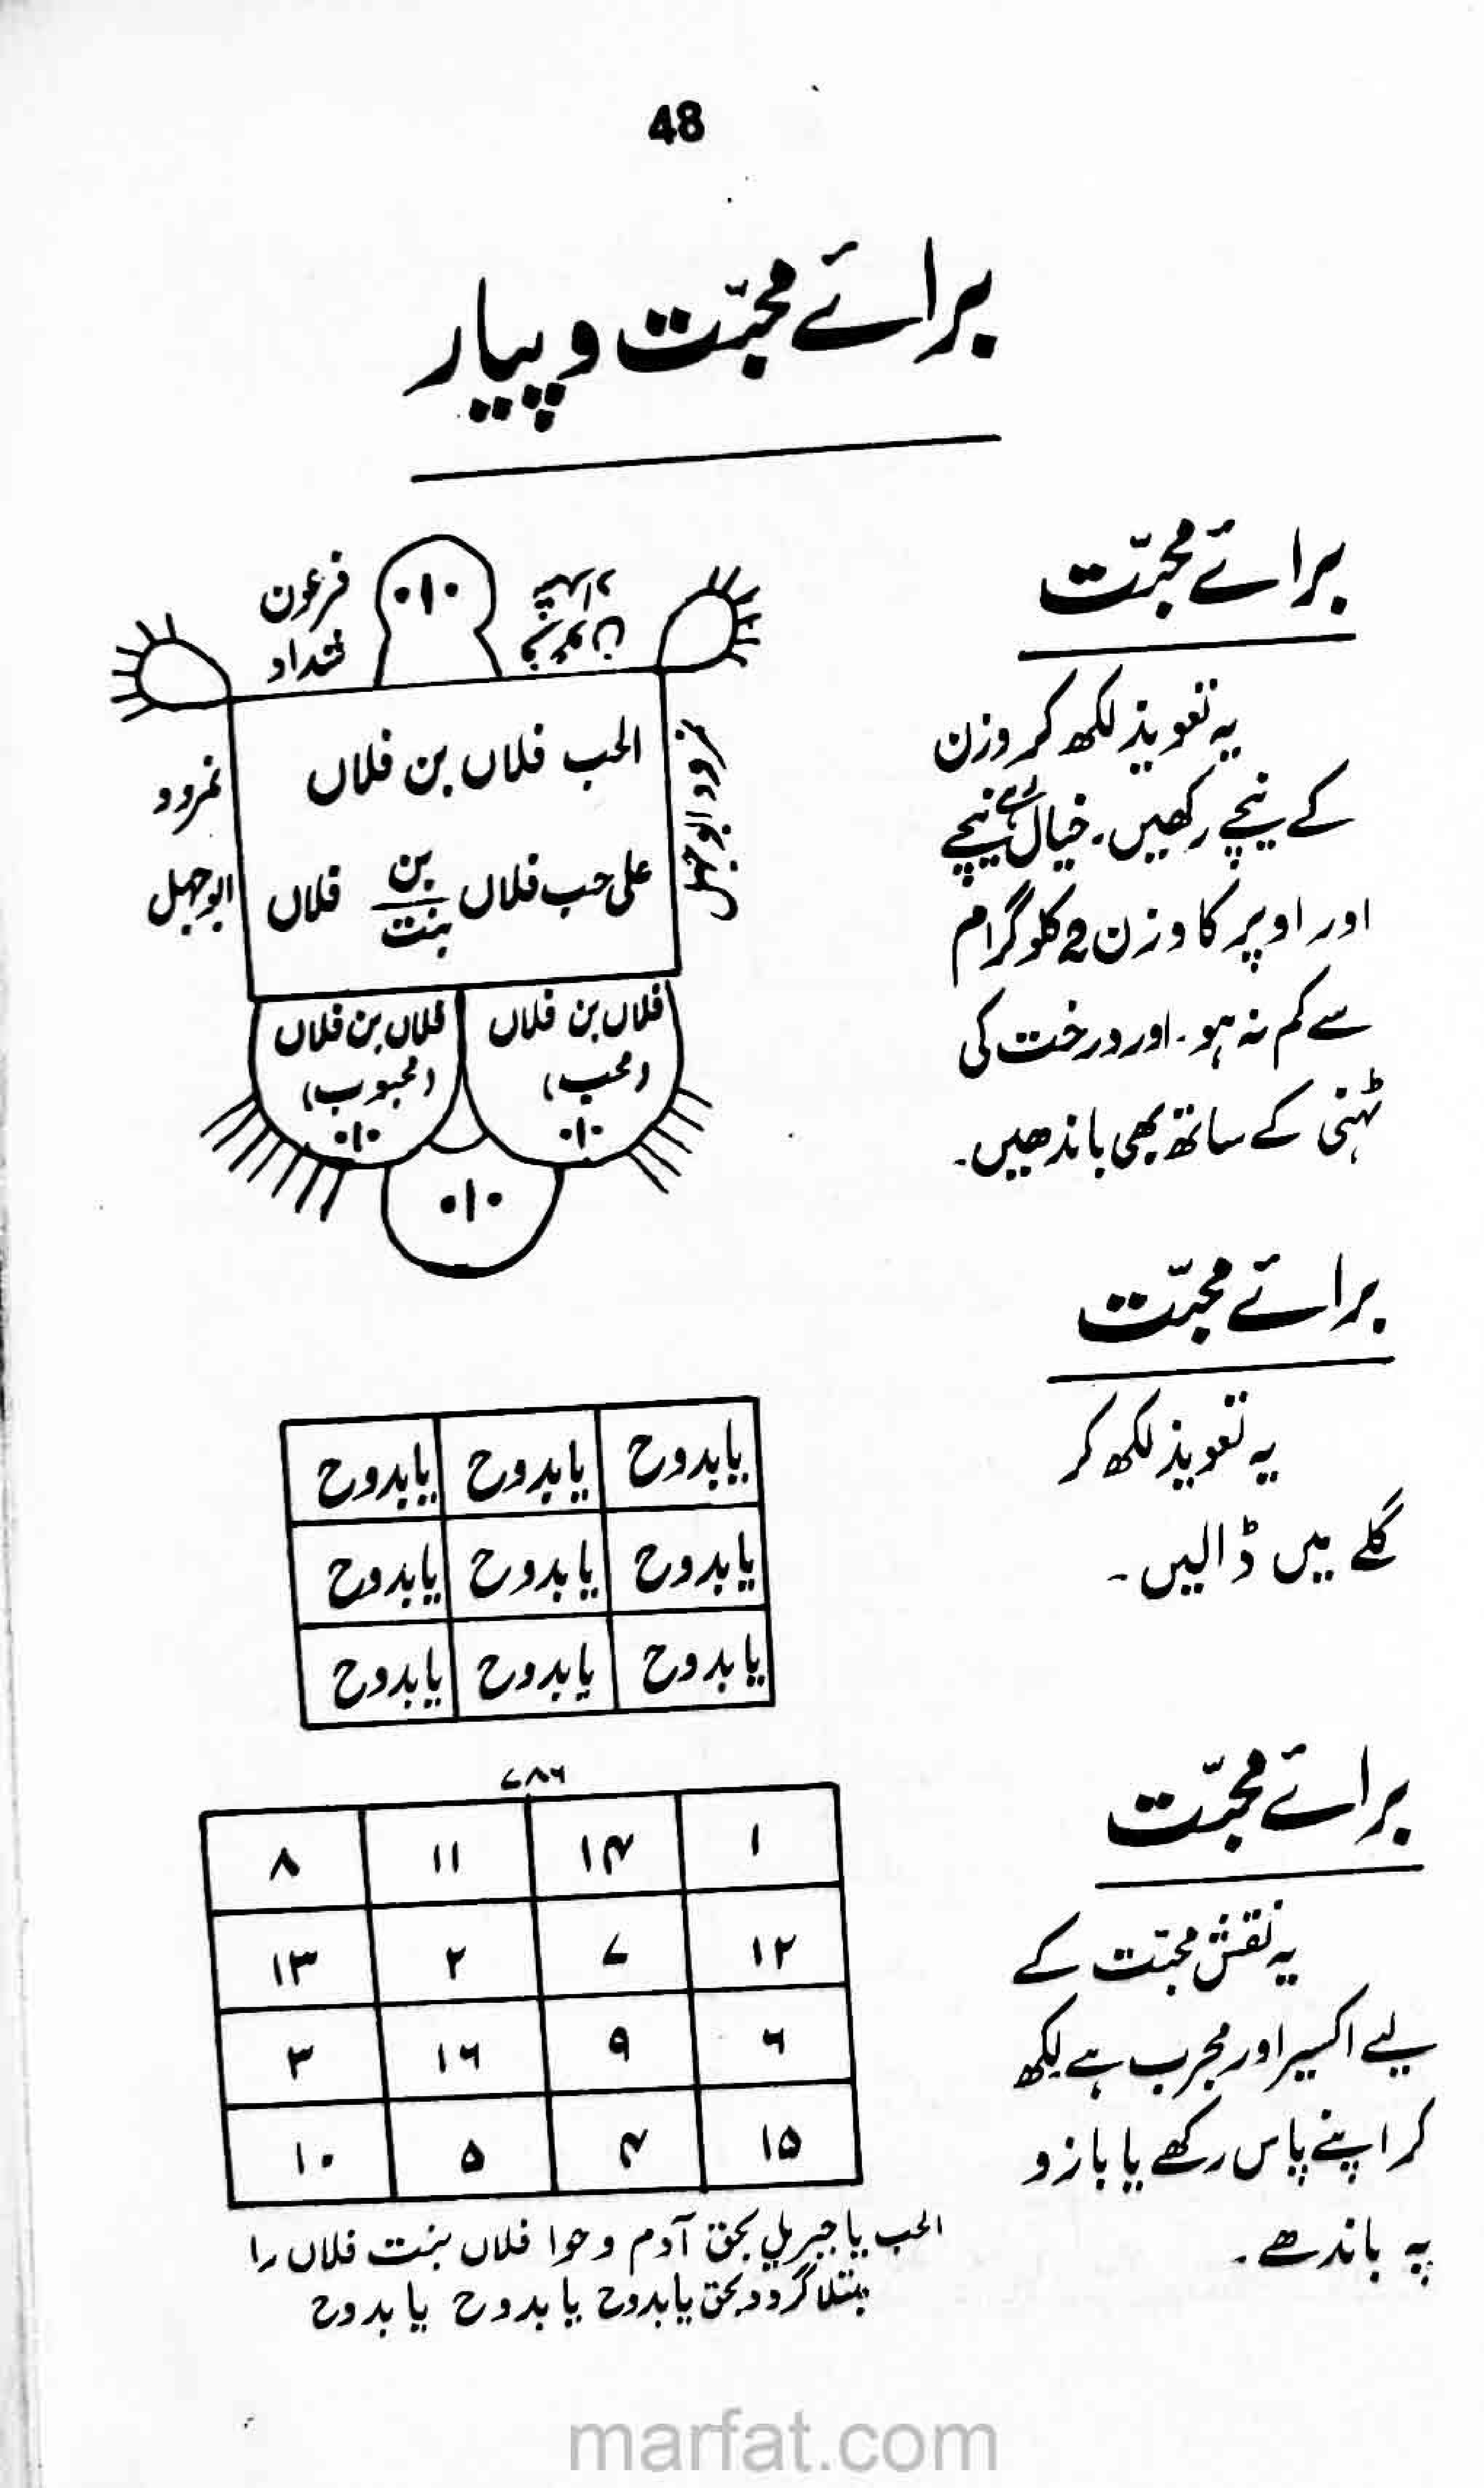 48
برائے محبّت و پیار
برائے محبّت
یہ تعویذ لکھ کر وزن
کے نیچے رکھیں۔ خیال رہے نیچے
اور اوپر کا وزن 2 کلوگرام
سے کم نہ ہو۔ اور درخت کی
ٹہنی کے ساتھ بھی باندھیں۔
فرعون
شداد
۰۱۰
نمرود
ابوجہل
نمرود ابوجہل
الحب فلاں بن فلاں
علی حب فلاں بن/بنت فلاں
فلاں بن فلاں
(محب)
۰۱۰
فلاں بن فلاں
(محبوب)
۰۱۰
۰۱۰
برائے محبّت
یہ تعویذ لکھ کر
گلے میں ڈالیں۔
یابدوح یابدوح یابدوح
یابدوح یابدوح یابدوح
یابدوح یابدوح یابدوح
برائے محبّت
یہ نقش محبّت کے
لیے اکسیر اور مجرب ہے لکھ
کر اپنے پاس رکھے یا بازو
پہ باندھے۔
۷۸۶
۱ ۱۴ ۱۱ ۸
۱۲ ۷ ۲ ۱۳
۶ ۹ ۱۶ ۳
۱۵ ۴ ۵ ۱۰
الحب یا جبریل بحق آدم و حوا فلاں بنت فلاں را
مبتلا گردد بحق یابدوح یا بدوح یا بدوح
marfat.com